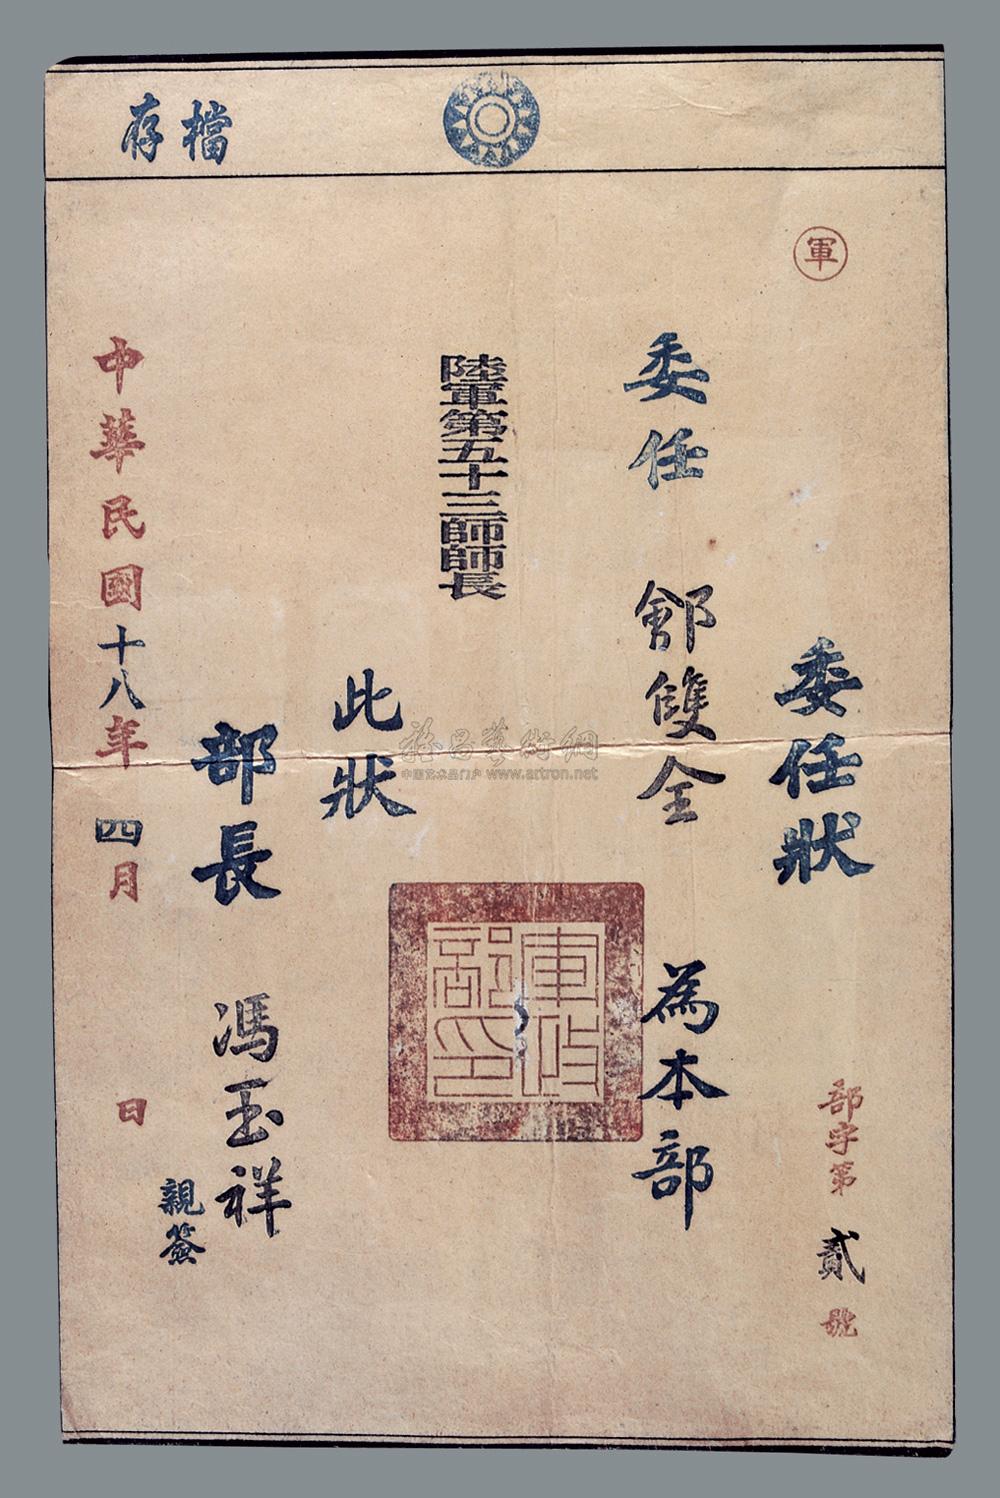 檔存
軍
委任狀
部字第貳號
委任 鄃雙全 為本部
陸軍第五十三師師長
此狀
部長 馮玉祥
親簽
中華民國十八年四月 日
雅昌藝術網
中国艺术品门户 www.artron.net